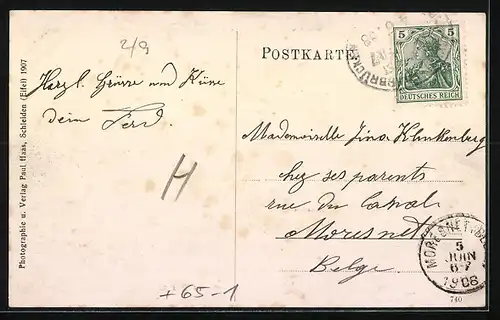 2/9
POSTKARTE
5 5
DEUTSCHES REICH
Herzl. Grüsse und Küsse
dein Ferd.
Mademoiselle Jina Klinkenberg
chez ses parents
rue du Canal
Moresnet
Belge.
H
MORESNET
5
JUIN
6-7
1908
+65-1
740
Photographie u. Verlag Paul Haas, Schleiden (Eifel) 1907